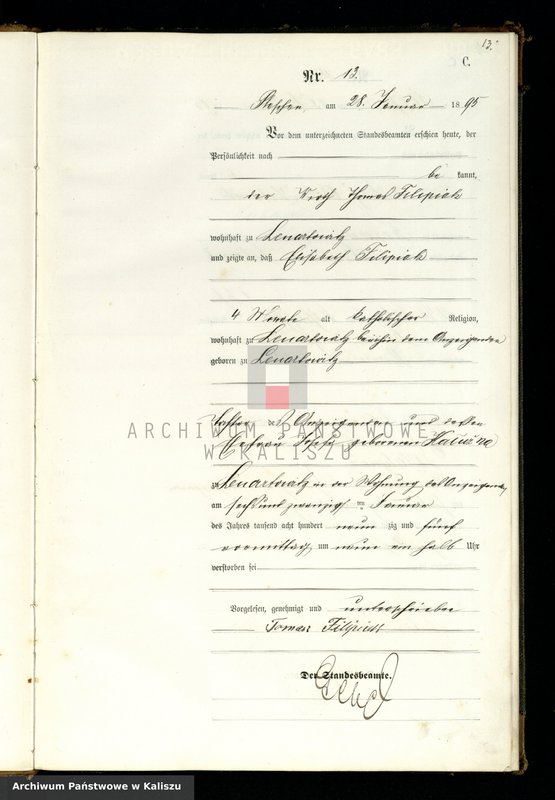 13.
C.
Nr. 13.
Pleschen, am 28. Januar 1895
Vor dem unterzeichneten Standesbeamten erschien heute, der
Persönlichkeit nach
be kannt,
der Wirth Thomas Filipiak
wohnhaft zu Lenartowitz
und zeigte an, daß Elisabeth Filipiak
4 Monate alt katholischer Religion,
wohnhaft zu Lenartowitz bei dem Anzeigenden
geboren zu Lenartowitz
Tochter des Anzeigenden und dessen
Ehefrau geborenen
zu Lenartowitz in der Wohnung des Anzeigenden
am sechsundzwanzigsten Januar
des Jahres tausend acht hundert neun zig und fünf
vormittags um neun ein halb Uhr
verstorben sei
Vorgelesen, genehmigt und unterschrieben
Tomasz Filipiak
Der Standesbeamte.
ARCHIWUM PAŃSTWOWE
W KALISZU
Archiwum Państwowe w Kaliszu